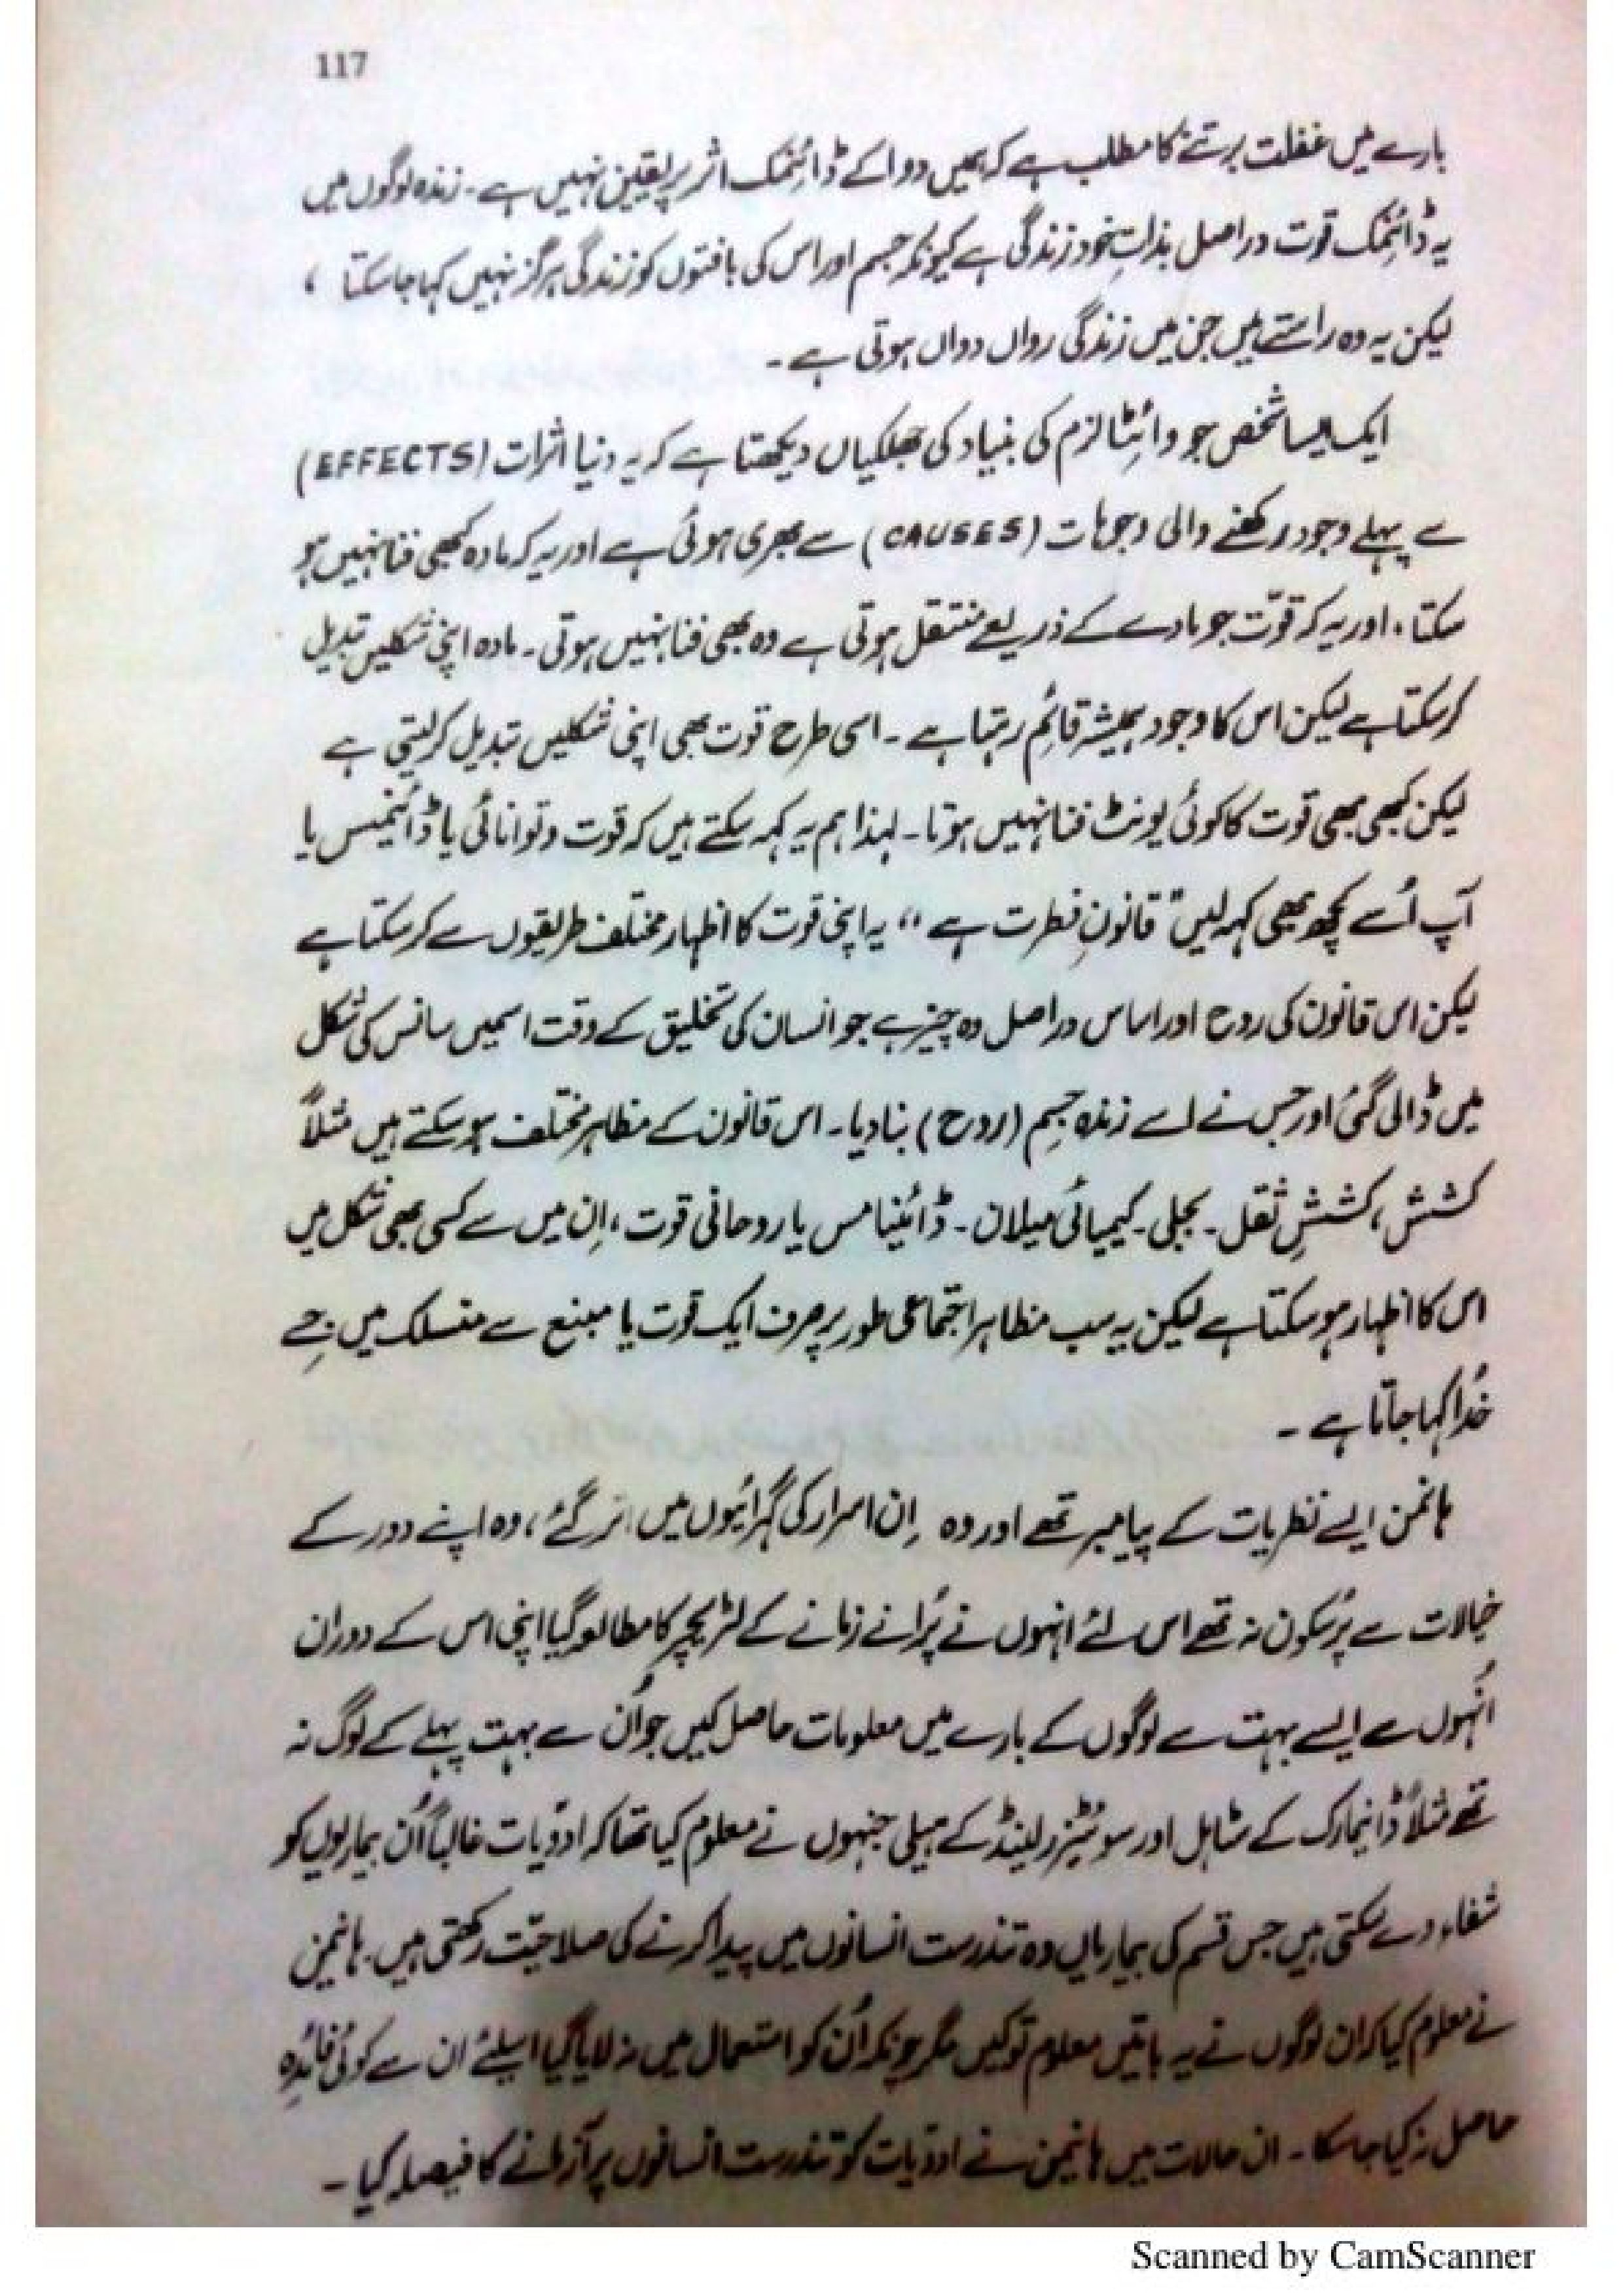 117
بارے میں غفلت برتنے کا مطلب ہے کہ ہمیں دوا کے ڈائنمک اثر پر یقین نہیں ہے۔ زندہ لوگوں میں
یہ ڈائنمک قوت دراصل بذاتِ خود زندگی ہے کیونکہ جسم اور اس کی بافتوں کو زندگی ہرگز نہیں کہا جا سکتا ،
لیکن یہ وہ راستے ہیں جن میں زندگی رواں دواں ہوتی ہے ۔
ایک ایسا شخص جو وائٹالزم کی بنیاد کی جھلکیاں دیکھتا ہے کہ یہ دنیا اثرات (EFFECTS)
سے پہلے وجود رکھنے والی وجوہات (CAUSES) سے بھری ہوئی ہے اور یہ کہ مادہ کبھی فنا نہیں ہو
سکتا، اور یہ کہ قوّت جو مادے کے ذریعے منتقل ہوتی ہے وہ بھی فنا نہیں ہوتی۔ مادہ اپنی شکلیں تبدیل
کر سکتا ہے لیکن اس کا وجود ہمیشہ قائم رہتا ہے ۔ اسی طرح قوت بھی اپنی شکلیں تبدیل کر لیتی ہے
لیکن کبھی بھی قوت کا کوئی یونٹ فنا نہیں ہوتا۔ لہذا ہم یہ کہہ سکتے ہیں کہ قوت و توانائی یا ڈائنمیس یا
آپ اُسے کچھ بھی کہہ لیں " قانونِ فطرت ہے " یہ اپنی قوت کا اظہار مختلف طریقوں سے کر سکتا ہے
لیکن اس قانون کی روح اور اساس دراصل وہ چیز ہے جو انسان کی تخلیق کے وقت اسمیں سانس کی شکل
میں ڈالی گئی اور جس نے اسے زندہ جسم (روح) بنا دیا۔ اس قانون کے مظاہر مختلف ہو سکتے ہیں مثلاً
کشش ، کششِ ثقل۔ بجلی۔ کیمیائی میلان ۔ ڈائنیامس یا روحانی قوت ، اِن میں سے کسی بھی شکل میں
اس کا اظہار ہو سکتا ہے لیکن یہ سب مظاہر اجتماعی طور پر صرف ایک قوت یا مبنع سے منسلک میں جسے
خُدا کہا جاتا ہے ۔
ہانمن ایسے نظریات کے پیامبر تھے اور وہ اِن اسرار کی گہرائیوں میں اتر گئے ، وہ اپنے دور کے
خیالات سے پُرسکون نہ تھے اس لئے انہوں نے پُرانے زمانے کے لٹریچر کا مطالعہ کیا اپنی اس کے دوران
اُنہوں سے ایسے بہت سے لوگوں کے بارے میں معلومات حاصل کیں جو اُن سے بہت پہلے کے لوگ نہ
تھے مثلاً ڈانمارک کے سٹاہل اور سوئٹزرلینڈ کے ہیلی جنہوں نے معلوم کیا تھا کہ ادویات غالباً اُن بیماریوں کو
شفاء دے سکتی ہیں جس قسم کی بیماریاں وہ تندرست انسانوں میں پیدا کرنے کی صلاحیّت رکھتی ہیں۔ ہانمین
نے معلوم کیا کہ ان لوگوں نے یہ باتیں معلوم تو کیں مگر چونکہ اُن کو استعمال میں نہ لایا گیا اسلئے ان سے کوئی فائدہ
حاصل نہ کیا جا سکا ۔ ان حالات میں ہانیمن نے ادویات کو تندرست انسانوں پر آزمانے کا فیصلہ کیا ۔
Scanned by CamScanner